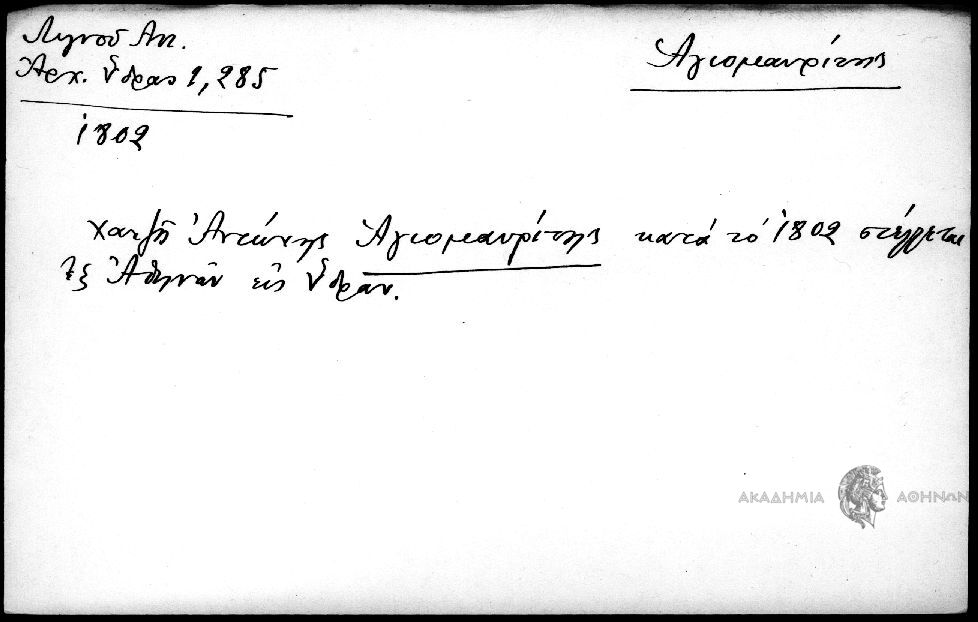 Λιγνοῦ Αντ.
Ἀρχ. Ὕδρας 1, 285
Ἁγιομαυρίτης
1802
χατζῆ Ἀντώνης Ἁγιομαυρίτης κατά τό 1802 στέλλεται
ἐξ Ἀθηνῶν εἰς Ὕδραν.
ΑΚΑΔΗΜΙΑ ΑΘΗΝΩΝ